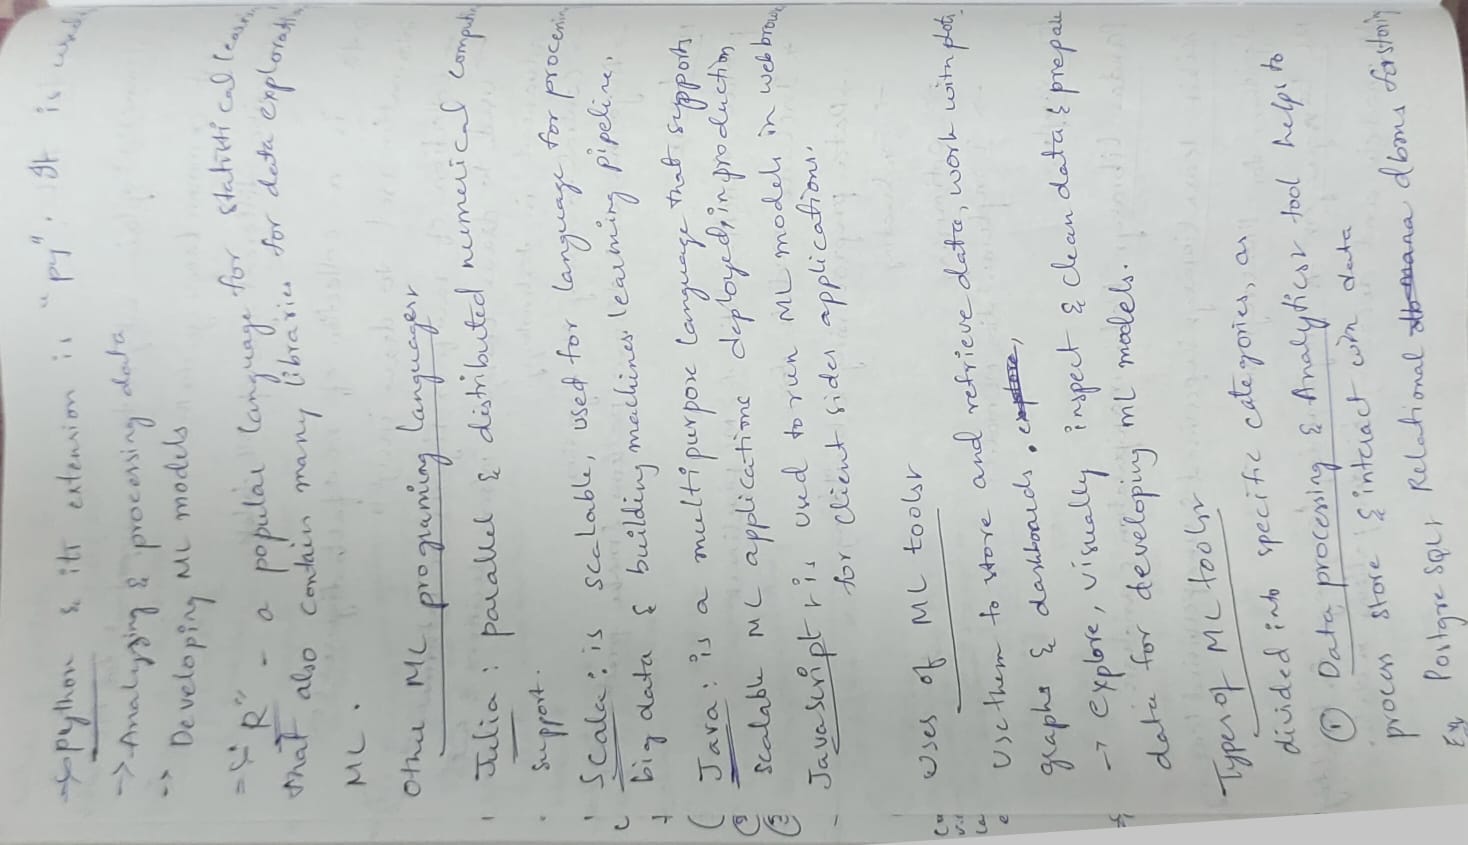 → python & its extension is "py". It is
→ Analyzing & processing data
→ Developing ML models
→ "R" - a popular language for statistical
that also contain many libraries for data
ML.
Other ML programing languages:
Julia : parallel & distributed numerical
Support.
Scala : is scalable, used for language for
big data & building machines learning pipeline.
Java : is a multipurpose language that supports
scalable ML applications deployed in production
Javascript : is used to run ML models in web
for client sides applications.
Uses of ML tools:
Use them to store and retrieve data, work with plots,
graphs & dashboards.
→ explore, visually inspect & clean data & prepare
data for developing ML models.
Types of ML tools:
divided into specific categories, as
① Data processing & Analytics: tool helps to
process store & interact with data
Ex Postgre SQL: Relational dbms for storing